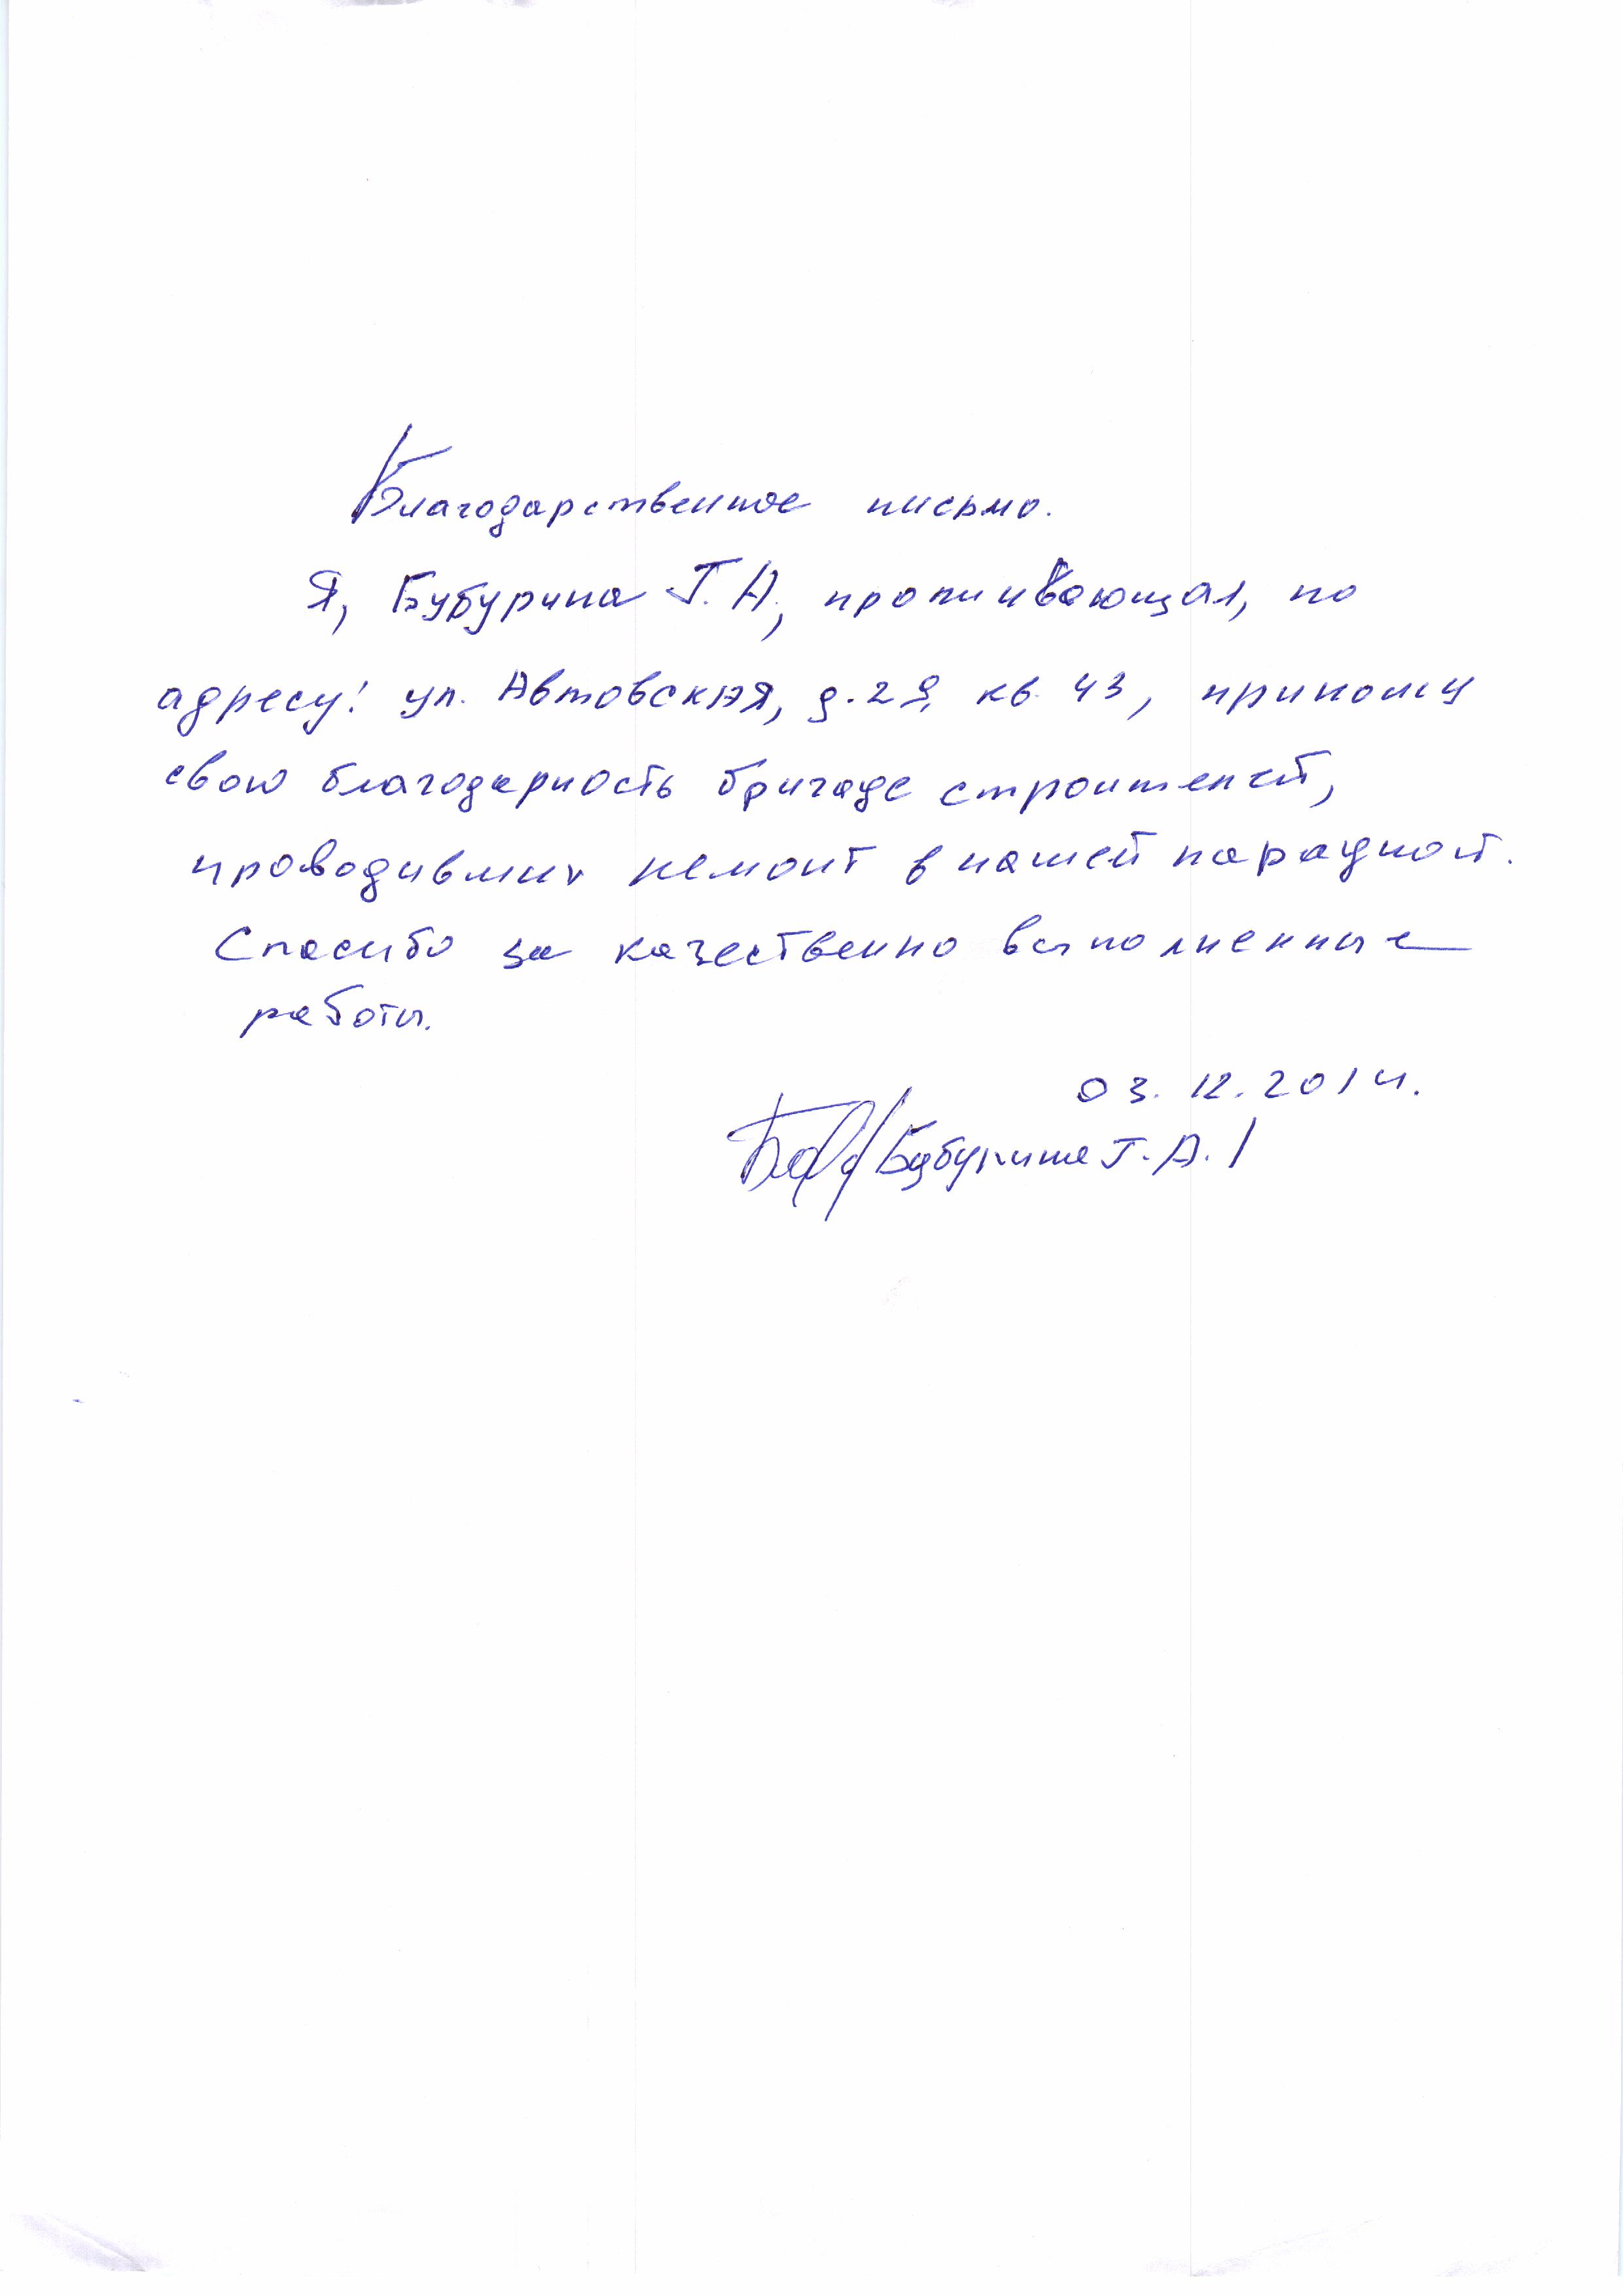 Благодарственное письмо.
Я, Бубурина Г. А., проживающая, по
адресу: ул. Автовская, д. 29, кв. 43, приношу
свою благодарность бригаде строителей,
проводивших ремонт в нашей парадной.
Спасибо за качественно выполненные
работы.
03. 12. 2014.
/Бубурина Г. А. /